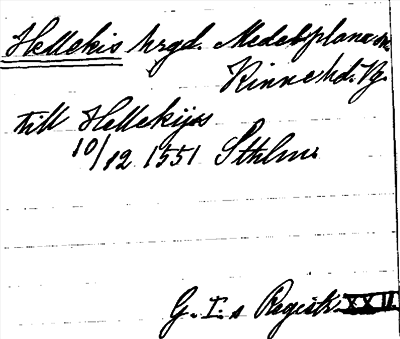 Hellekis hrgd. Medelplana sn
Kinne hd. Vg.
till Hellekijss
10/12 1551 Sthlm.
G. I:s Registr. XXII